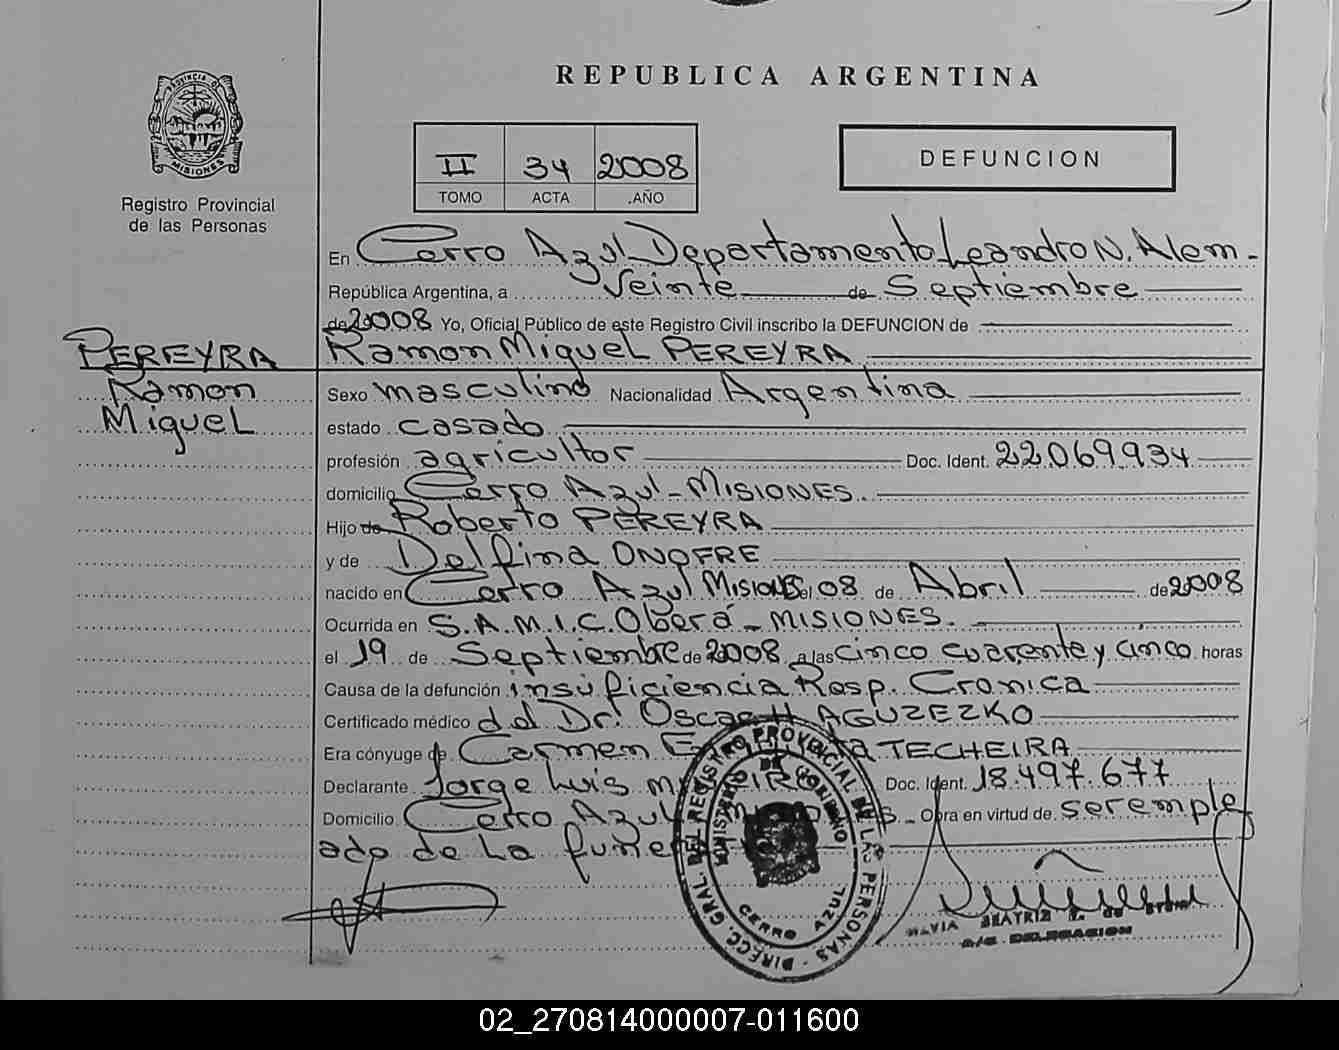 REPUBLICA ARGENTINA
PROVINCIA D MISIONES
Registro Provincial
de las Personas
II 34 2008
TOMO ACTA .AÑO
DEFUNCION
En Cerro Azul Departamento Leandro N. Alem-
República Argentina, a Veinte de Septiembre
de 2008 Yo, Oficial Público de este Registro Civil inscribo la DEFUNCION de
PEREYRA Ramon Miguel PEREYRA
Ramon Sexo masculino Nacionalidad Argentina
Miguel estado casado
profesión agricultor Doc. Ident. 22.069.934
domicilio Cerro Azul - MISIONES.
Hijo de Roberto PEREYRA
y de Delfina ONOFRE
nacido en Cerro Azul MISIONES el 08 de Abril de 2008
Ocurrida en S.A.M.I.C. Oberá - MISIONES.
el 19 de Septiembre de 2008 a las cinco cuarente y cinco horas
Causa de la defunción insuficiencia Resp. Cronica
Certificado médico del Dr. Oscar H AGUZEZKO
Era cónyuge de Carmen TECHEIRA
Declarante Jorge Luis Doc. Ident. 18.497.677
Domicilio Cerro Azul Obra en virtud de ser emple
ado de la
DIRECC. GRAL. DEL REGISTRO PROVINCIAL DE LAS PERSONAS
MINISTERIO DE GOBIERNO
CERRO AZUL
BEATRIZ
A/C DELEGACION
02_270814000007-011600